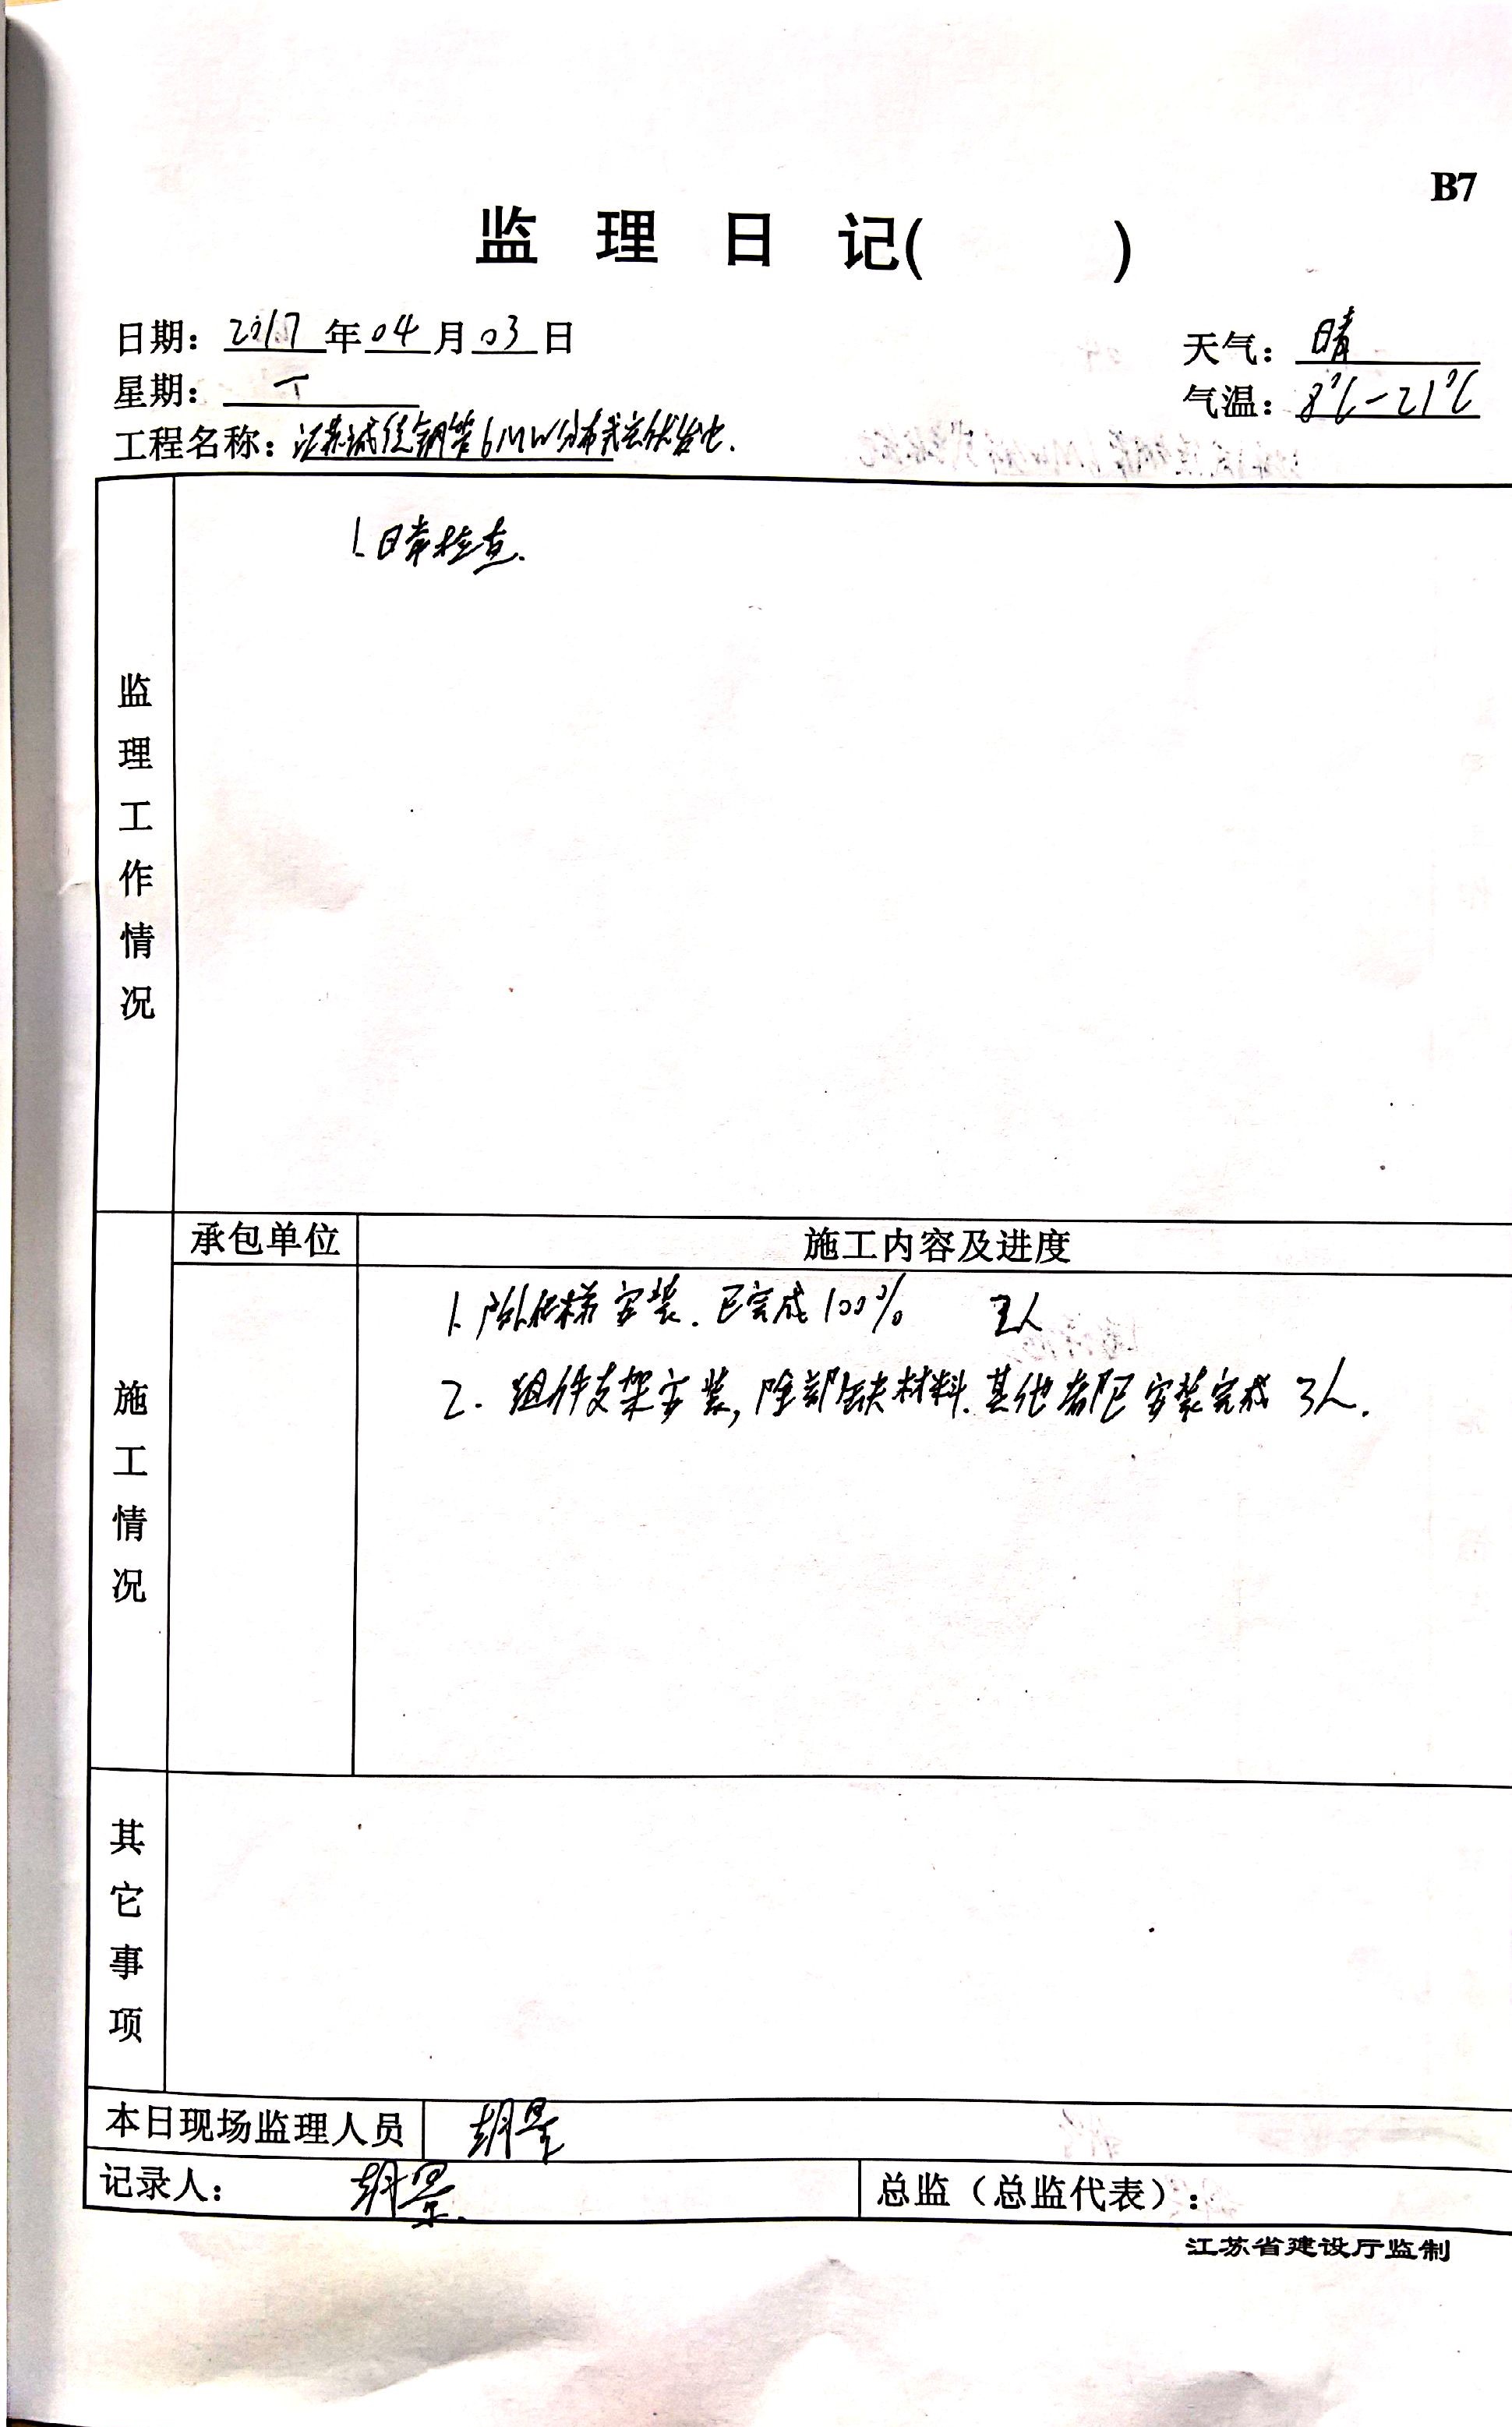 B7
监理日记( )
日期: 2017 年 04 月 03 日
天气: 晴
星期: 一
气温: 8℃-21℃
工程名称: 江苏诚信钢管6MW分布式光伏发电.
1.日常检查.
监理工作情况
承包单位 施工内容及进度
1. 安装.已完成100% 人
2. 组件支架安装,除部缺材料.其他都已安装完成 3人.
施工情况
其它事项
本日现场监理人员 胡
记录人: 胡
总监(总监代表):
江苏省建设厅监制